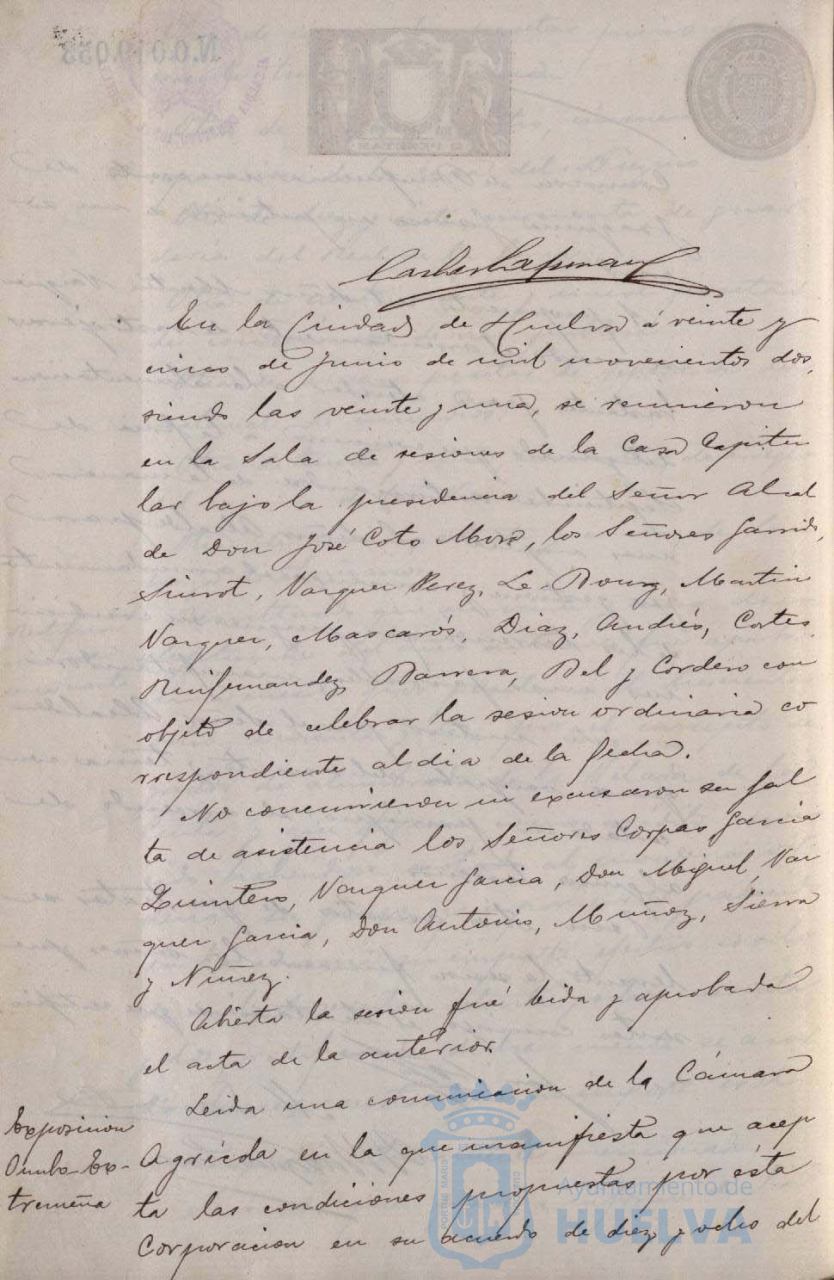 N.0.019.053
En la Ciudad de Huelva á veinte y
cinco de Junio de mil novecientos dos,
siendo las veinte y una, se reunieron
en la Sala de sesiones de la Casa Capitu
lar bajo la presidencia del Señor Alcal
de Don José Coto Mora, los Señores Garrido,
Siurot, Vazquez Perez, Le-Bourg, Martin
Vazquez, Mascarós, Diaz, Andrés, Cortes,
Ruifernandez, Barrera, Bel y Cordero con
objeto de celebrar la sesion ordinaria co
rrespondiente al dia de la fecha.
No concurrieron ni excusaron su fal
ta de asistencia los Señores Corpas, Garcia
Quintero, Vazquez Garcia, Don Miguel, Vaz
quez Garcia, Don Antonio, Muñoz, Sierra
y Nuñez.
Abierta la sesion fué leida y aprobada
el acta de la anterior.
Exposicion
Onubo-Ex-
tremeña
Leida una comunicacion de la Cámara
Agrícola en la que manifiesta que acep
ta las condiciones propuestas por ésta
Corporacion en su acuerdo de diez y ocho del
Ayuntamiento de
HUELVA